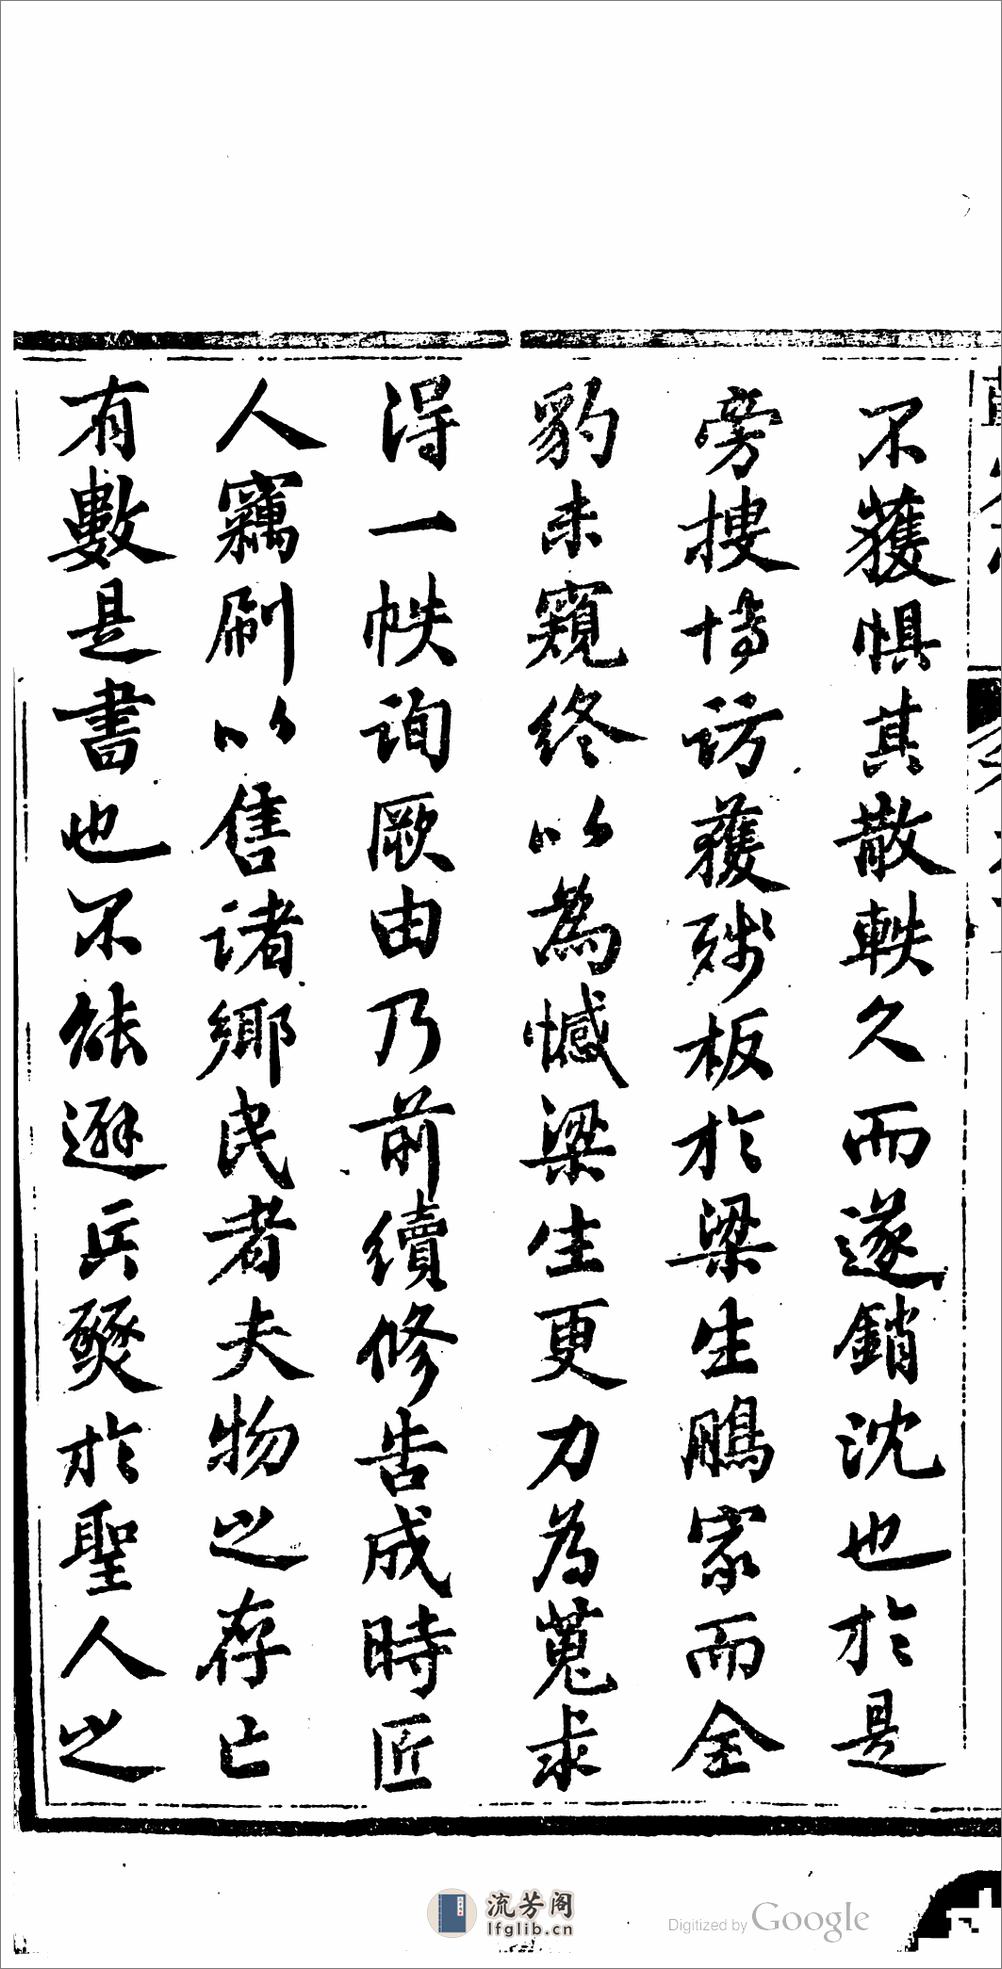 不獲惧其散軼久而遂銷沈也於是
旁搜博訪獲残板於梁生鵬家而全
豹未窺終以為憾梁生更力為蒐求
得一帙询厥由乃前續修告成時匠
人竊刷以售诸鄉民者夫物之存亡
有數是書也不能避兵燹於聖人之
流芳阁
lfglib.cn
Digitized by Google